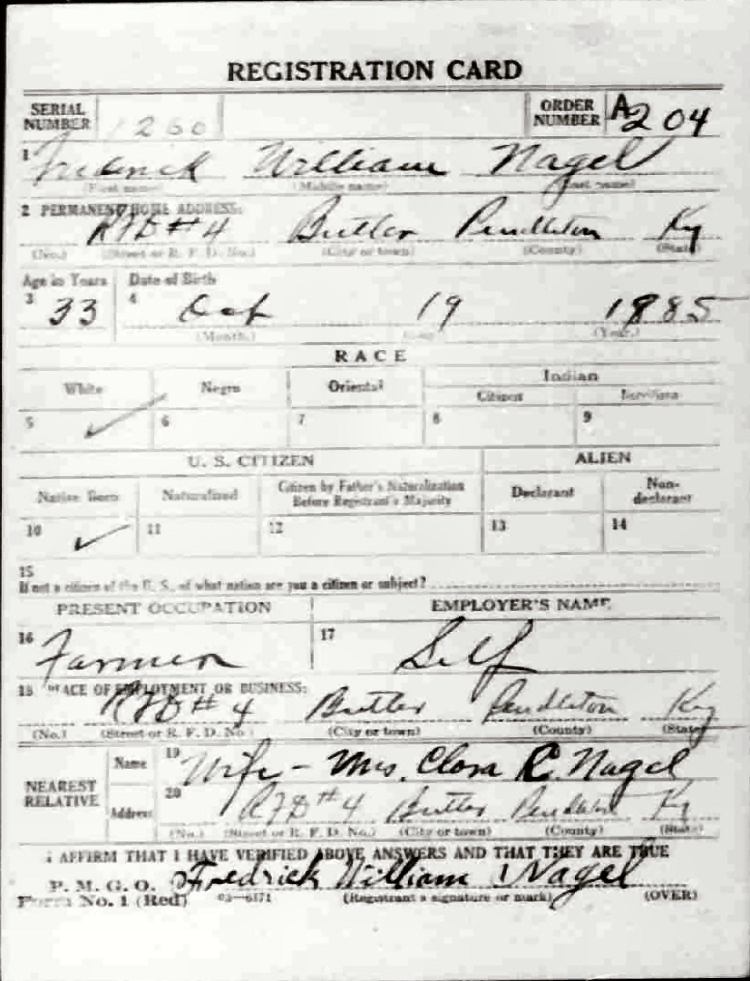 REGISTRATION CARD
SERIAL NUMBER 1260 ORDER NUMBER A204
1 Frederick William Nagel
(First name) (Middle name) (Last name)
2 PERMANENT HOME ADDRESS:
RFD #4 Butler Pendleton Ky
(No.) (Street or R. F. D. No.) (City or town) (County) (State)
Age in Years Date of Birth
3 33 4 Oct 19 1885
(Month.) (Day.) (Year.)
RACE
White Negro Oriental Indian
Citizen
5 ✓ 6 7 8 9
U. S. CITIZEN ALIEN
Native Born Naturalized Citizen by Father's Naturalization Before Registrant's Majority Declarant Non-declarant
10 ✓ 11 12 13 14
15
If not a citizen of the U. S., of what nation are you a citizen or subject?
PRESENT OCCUPATION EMPLOYER'S NAME
16 Farmer 17 Self
18 PLACE OF EMPLOYMENT OR BUSINESS:
RFD #4 Butler Pendleton Ky
(No.) (Street or R. F. D. No.) (City or town) (County) (State)
NEAREST RELATIVE Name 19 Wife - Mrs. Clora C. Nagel
Address 20 RFD #4 Butler Pendleton Ky
(No.) (Street or R. F. D. No.) (City or town) (County) (State)
I AFFIRM THAT I HAVE VERIFIED ABOVE ANSWERS AND THAT THEY ARE TRUE
P. M. G. O. Fredrick William Nagel
Form No. 1 (Red) 03—6171 (Registrant's signature or mark) (OVER)